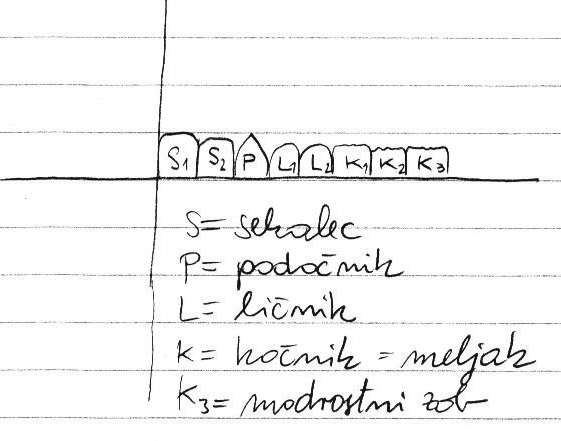 S₁ S₂ P L₁ L₂ K₁ K₂ K₃
S= sekalec
P= podočnik
L= ličnik
K= kočnik = meljak
K₃= modrostni zob